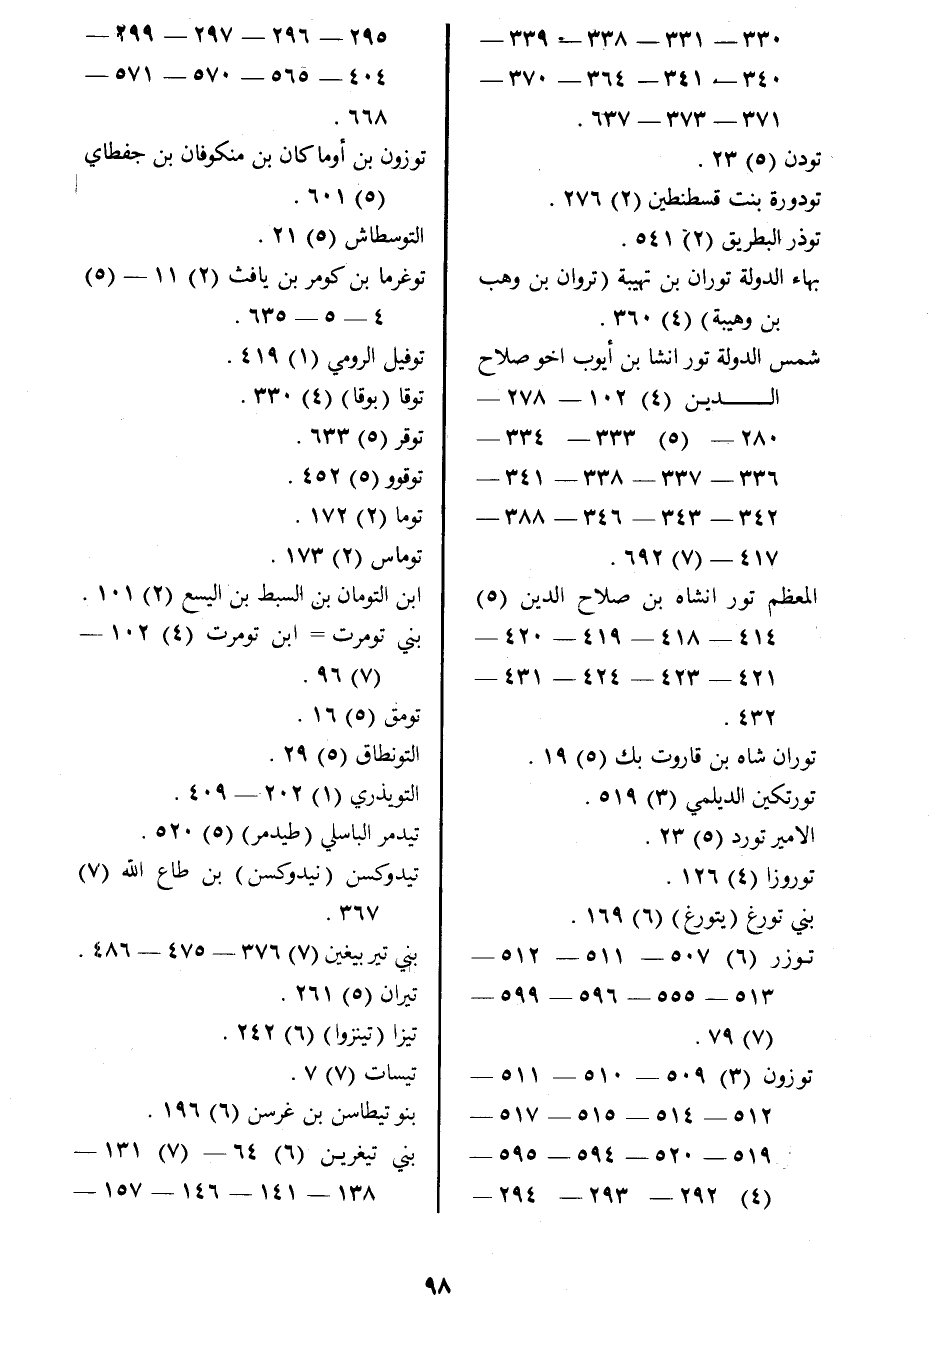 ٣٣٠ — ٣٣١ — ٣٣٨ — ٣٣٩ —
٣٤٠ — ٣٤١ — ٣٦٤ — ٣٧٠ —
٣٧١ — ٣٧٣ — ٦٣٧ .
تودن (٥) ٢٣ .
تودورة بنت قسطنطين (٢) ٢٧٦ .
توذر البطريق (٢) ٥٤١ .
بهاء الدولة توران بن تهيبة (تروان بن وهب
بن وهيبة) (٤) ٣٦٠ .
شمس الدولة تور انشا بن أيوب اخو صلاح
الـــــدين (٤) ١٠٢ — ٢٧٨ —
٢٨٠ — (٥) ٣٣٣ — ٣٣٤ —
٣٣٦ — ٣٣٧ — ٣٣٨ — ٣٤١ —
٣٤٢ — ٣٤٣ — ٣٤٦ — ٣٨٨ —
٤١٧ — (٧) ٦٩٢ .
المعظم تور انشاه بن صلاح الدين (٥)
٤١٤ — ٤١٨ — ٤١٩ — ٤٢٠ —
٤٢١ — ٤٢٣ — ٤٢٤ — ٤٣١ —
٤٣٢ .
توران شاه بن قاروت بك (٥) ١٩ .
تورتكين الديلمي (٣) ٥١٩ .
الامير تورد (٥) ٢٣ .
توروزا (٤) ١٢٦ .
بني تورغ (يتورغ) (٦) ١٦٩ .
تـوزر (٦) ٥٠٧ — ٥١١ — ٥١٢ —
٥١٣ — ٥٥٥ — ٥٩٦ — ٥٩٩ —
(٧) ٧٩ .
توزون (٣) ٥٠٩ — ٥١٠ — ٥١١ —
٥١٢ — ٥١٤ — ٥١٥ — ٥١٧ —
٥١٩ — ٥٢٠ — ٥٩٤ — ٥٩٥ —
(٤) ٢٩٢ — ٢٩٣ — ٢٩٤ —
٢٩٥ — ٢٩٦ — ٢٩٧ — ٢٩٩ —
٤٠٤ — ٥٦٥ — ٥٧٠ — ٥٧١ —
٦٦٨ .
توزون بن أوماكان بن منكوفان بن جفطاي
(٥) ٦٠١ .
التوسطاش (٥) ٢١ .
توغرما بن كومر بن يافث (٢) ١١ — (٥)
٤ — ٥ — ٦٣٥ .
توفيل الرومي (١) ٤١٩ .
توقا (بوقا) (٤) ٣٣٠ .
توقر (٥) ٦٣٣ .
توقوو (٥) ٤٥٢ .
توما (٢) ١٧٢ .
توماس (٢) ١٧٣ .
ابن التومان بن السبط بن اليسع (٢) ١٠١ .
بني تومرت = ابن تومرت (٤) ١٠٢ —
(٧) ٩٦ .
تومق (٥) ١٦ .
التونطاق (٥) ٢٩ .
التويذري (١) ٢٠٢ — ٤٠٩ .
تيدمر الباسلي (طيدمر) (٥) ٥٢٠ .
تيدوكسن (نيدوكسن) بن طاع الله (٧)
٣٦٧ .
بني تيربيغين (٧) ٣٧٦ — ٤٧٥ — ٤٨٦ .
تيران (٥) ٢٦١ .
تيزا (تينزوا) (٦) ٢٤٢ .
تيسات (٧) ٧ .
بنو تيطاسن بن غرسن (٦) ١٩٦ .
بني تيغرين (٦) ٦٤ — (٧) ١٣١ —
١٣٨ — ١٤١ — ١٤٦ — ١٥٧ —
٩٨